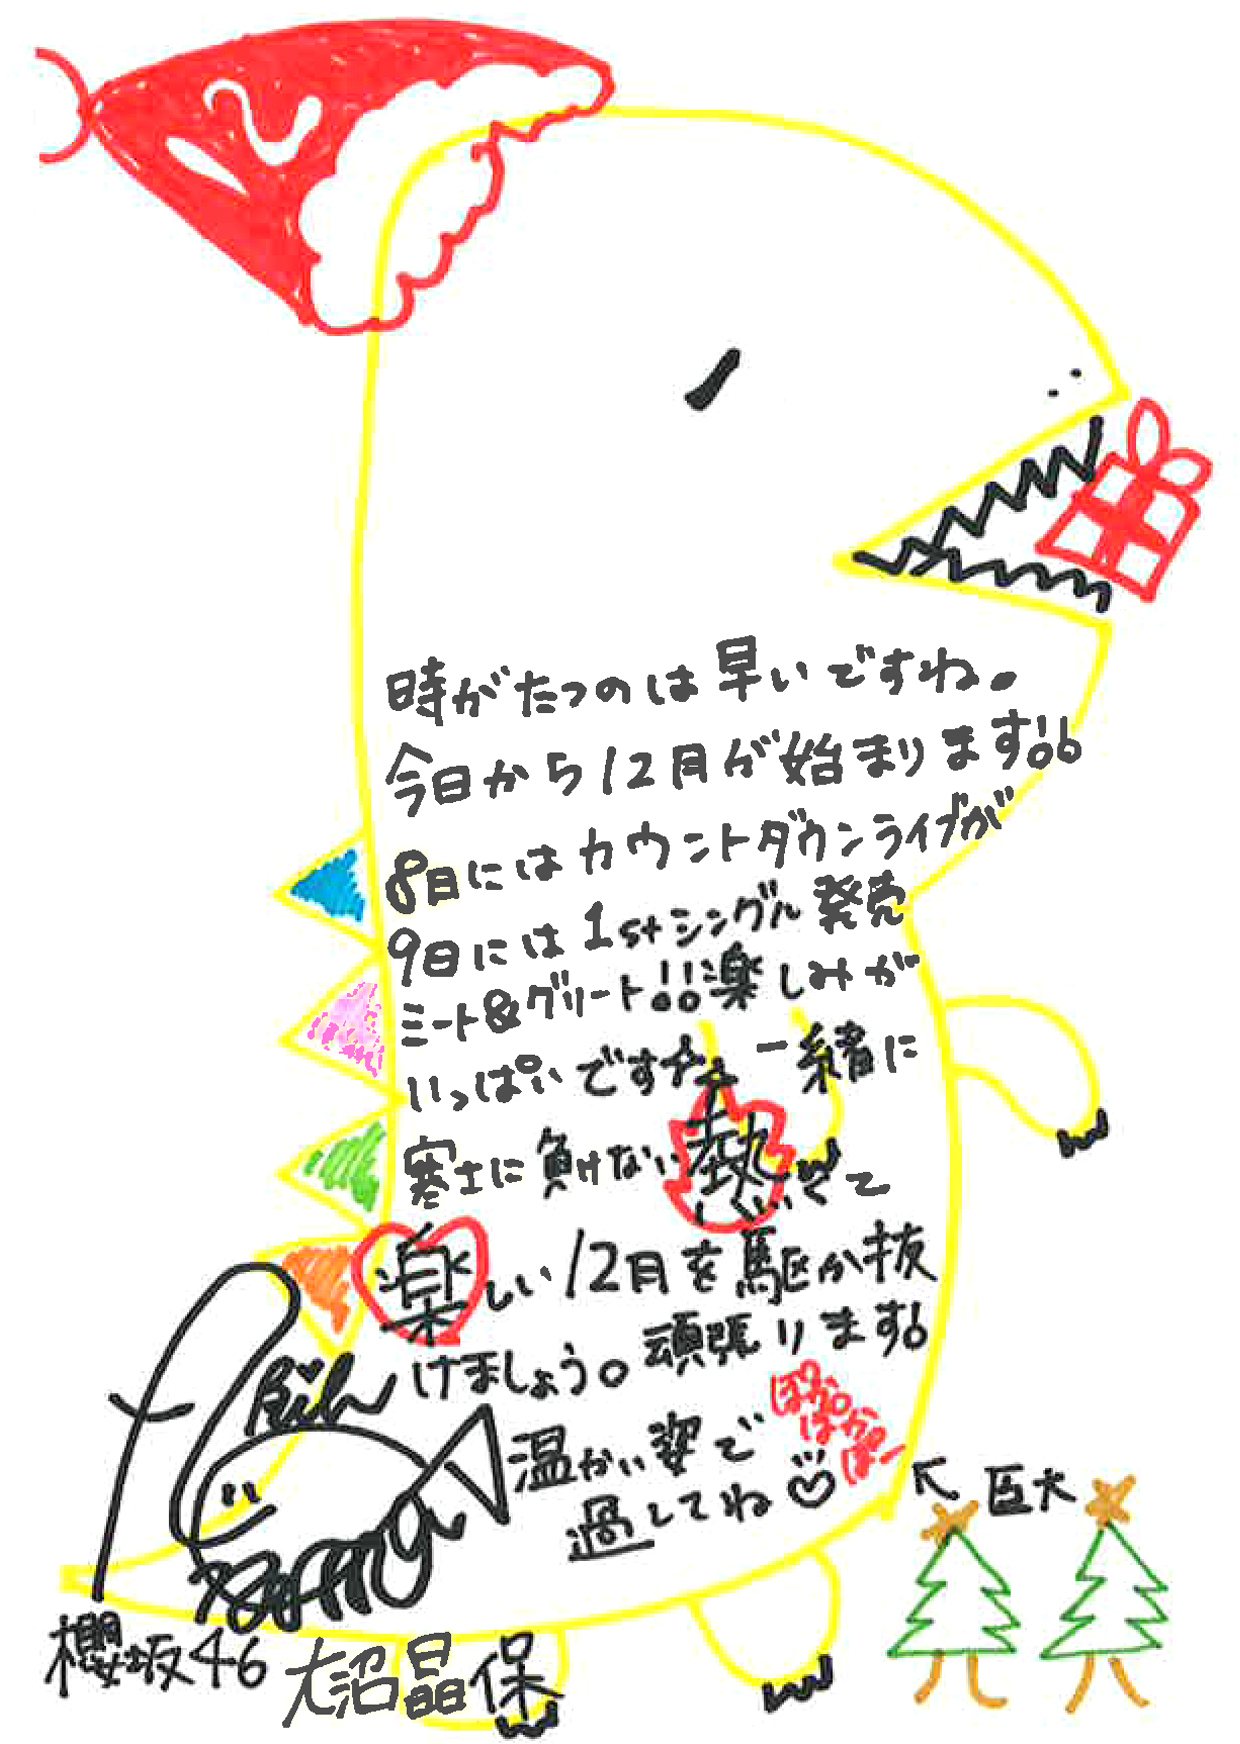 時がたつのは早いですね。
今日から12月が始まります!!
8日にはカウントダウンライブが
9日には1stシングル発売
ミート&グリート!!楽しみが
いっぱいです 一緒に
寒さに負けない熱くて
楽しい12月を駆け抜
けましょう。頑張ります!
温かい姿で
過してね
ぽかぽか
ぽー
巨大
櫻坂46 大沼晶保